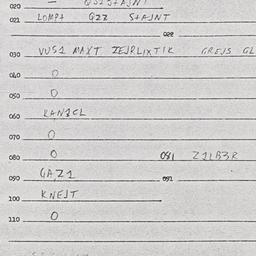 020
021 LOMPA QZZ STAJNT
022
030 VUS1 MAXT ZEJRLIXTIK GREJS GL
040 O
050 O
060 KANZCL
070 O
080 O 081 Z1LB3R
090 GAZ1 091
100 KNEJT
110 O